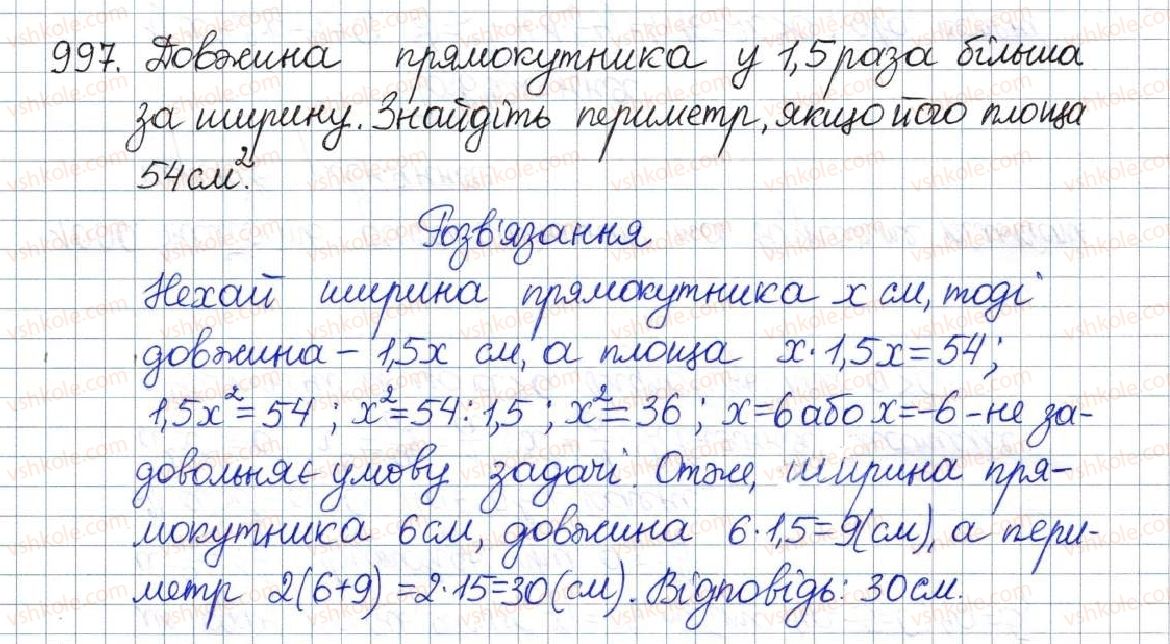 997. Довжина прямокутника у 1,5 раза більша
за ширину. Знайдіть периметр, якщо його площа
54 см².
Розв'язання
Нехай ширина прямокутника x см, тоді
довжина – 1,5x см, а площа x · 1,5x = 54;
1,5x² = 54 ; x² = 54 : 1,5 ; x² = 36 ; x = 6 або x = -6 - не за-
довольняє умову задачі. Отже, ширина пря-
мокутника 6 см, довжина 6 · 1,5 = 9 (см), а пери-
метр 2(6+9) = 2·15 = 30 (см). Відповідь: 30 см.